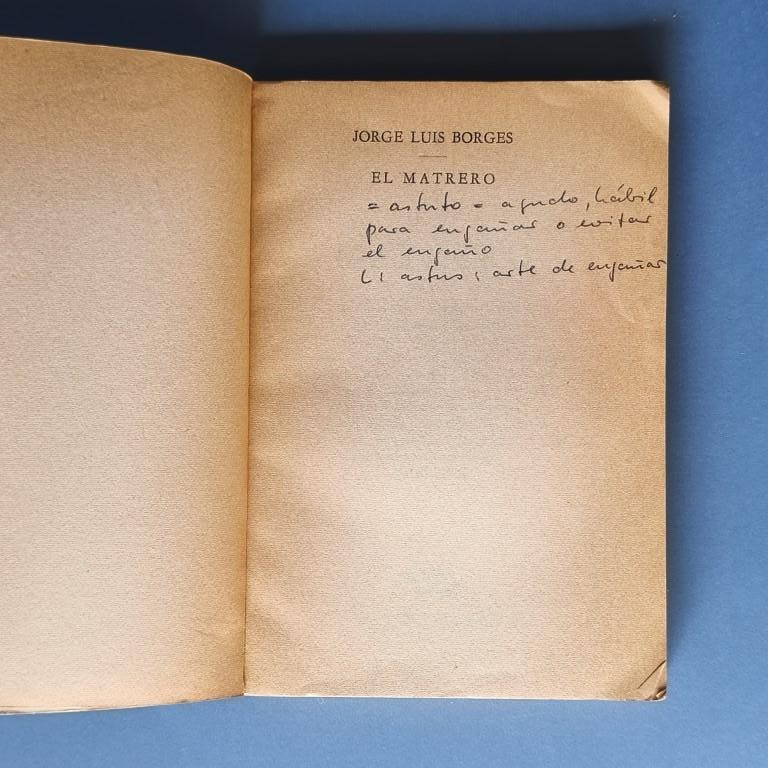 JORGE LUIS BORGES
EL MATRERO
= astuto = agudo, hábil
para engañar o evitar
el engaño
L: astus: arte de engañar